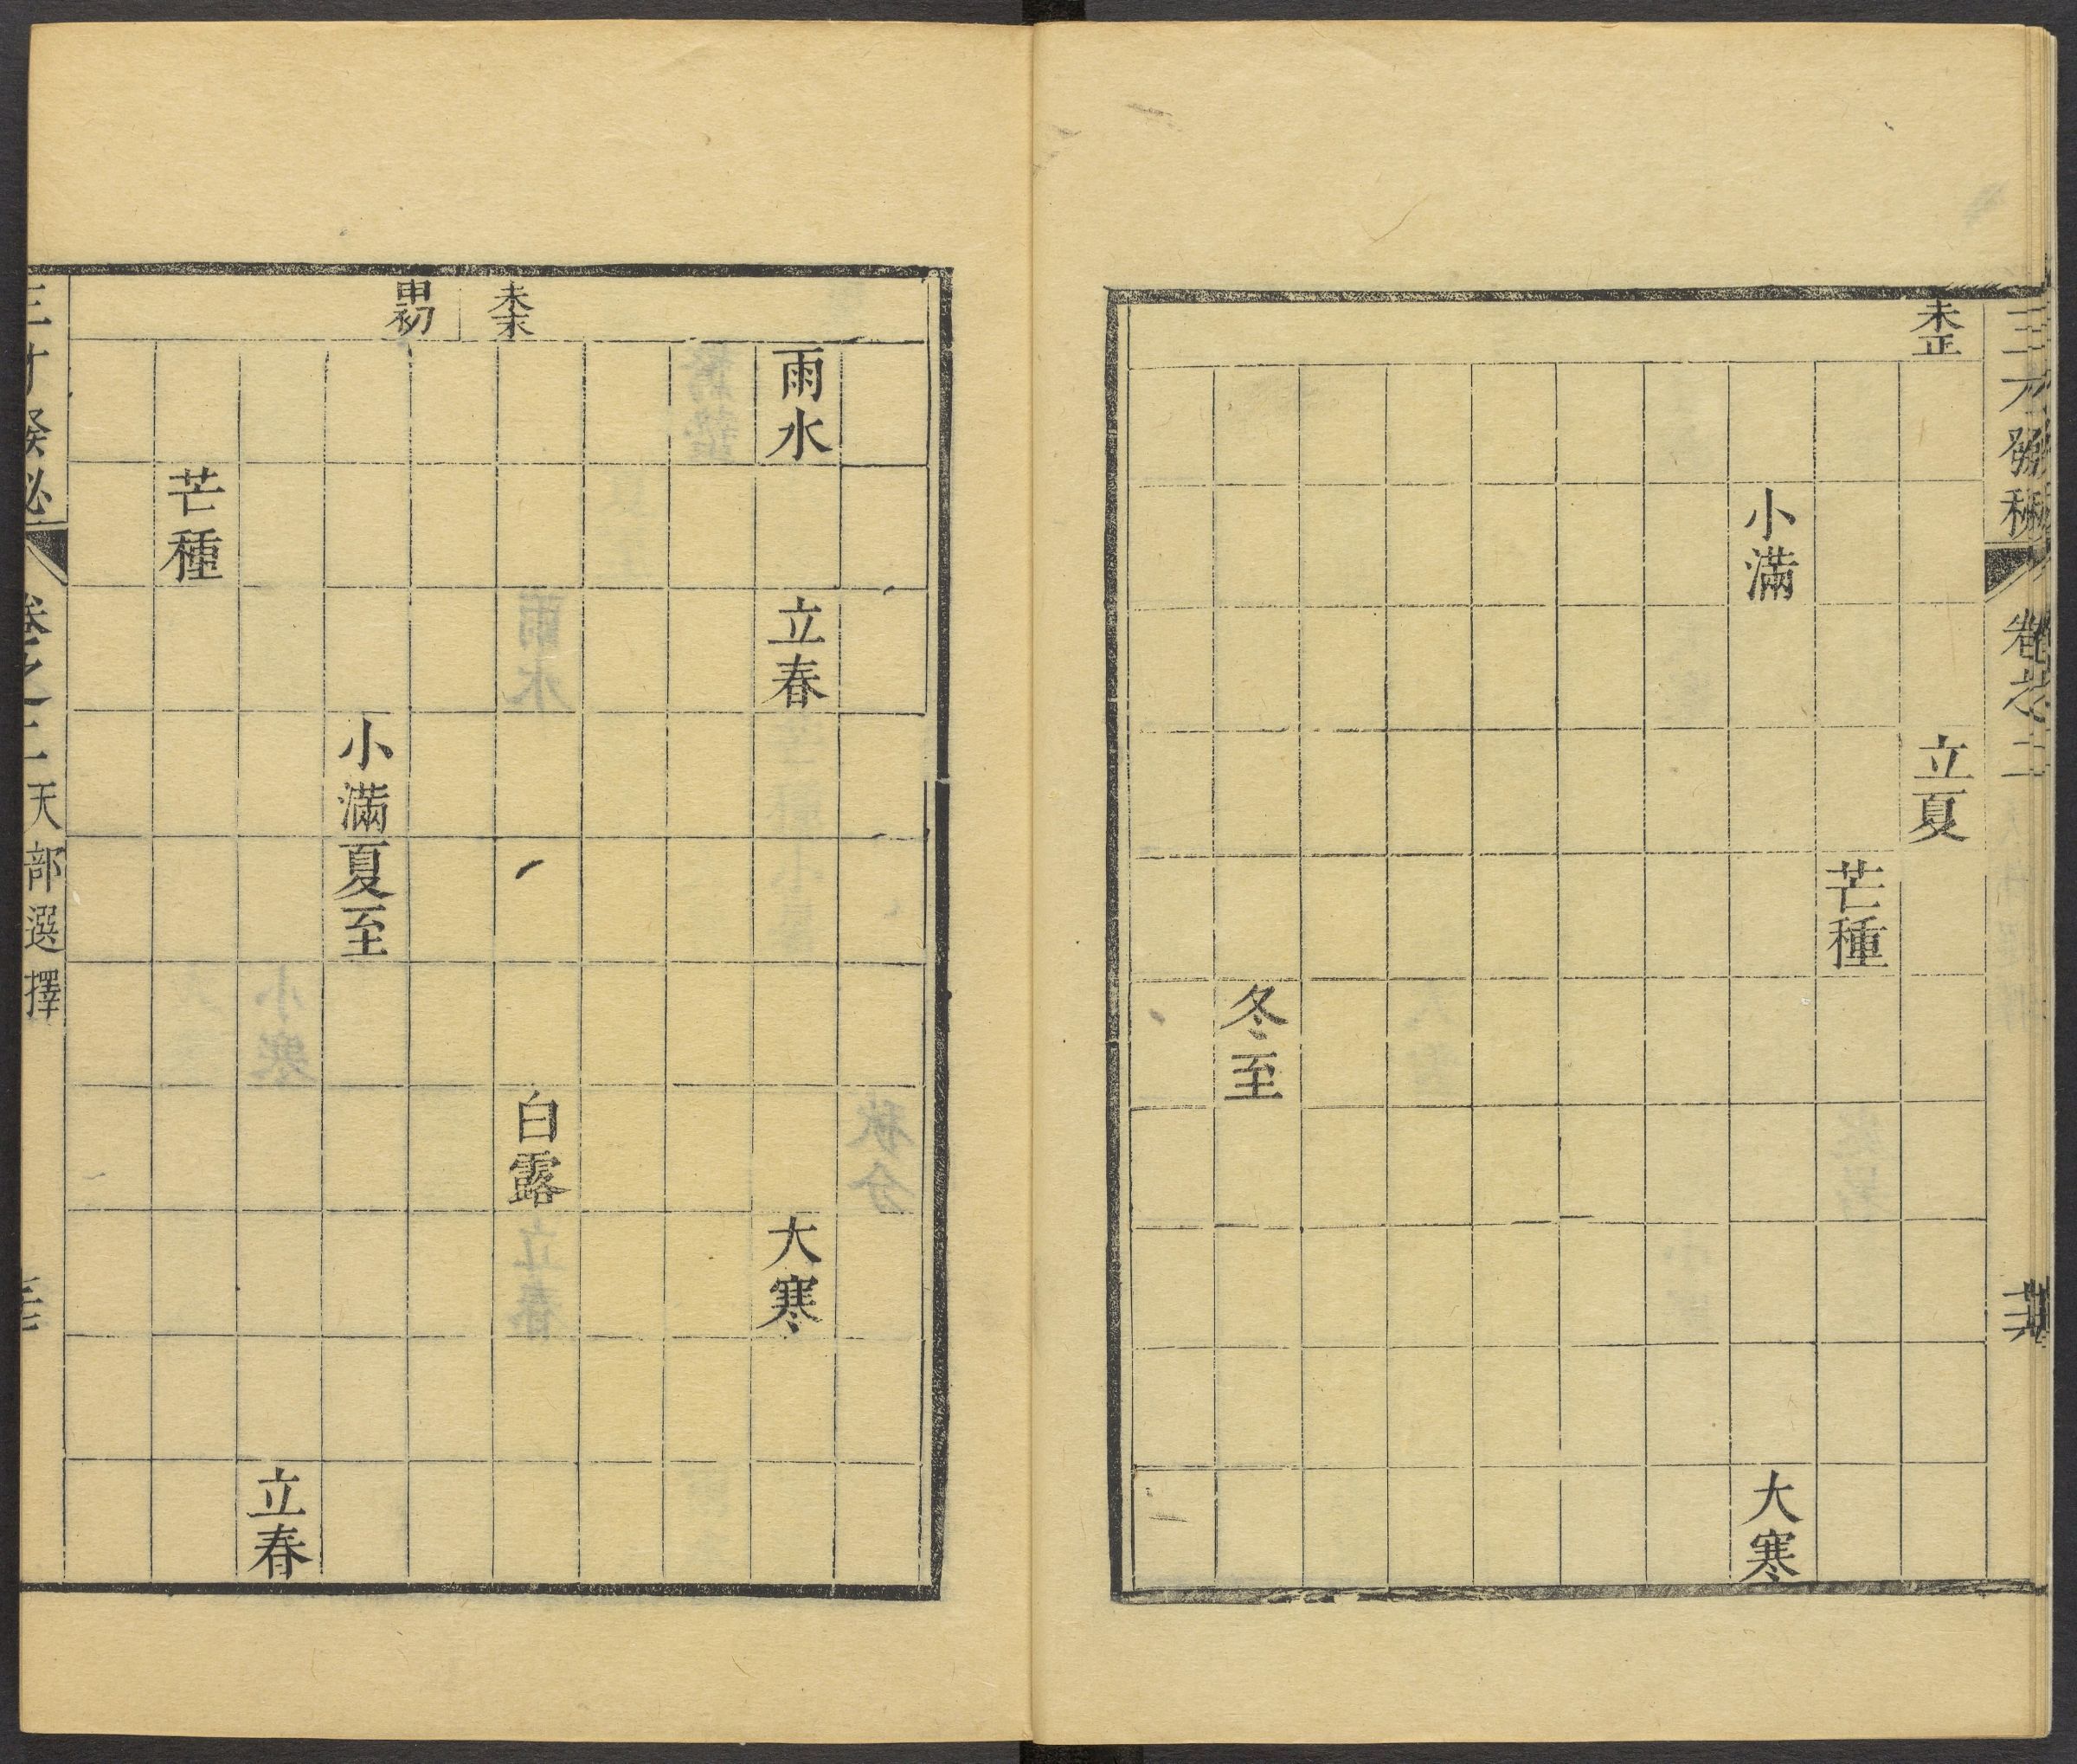 三才發秘
卷之二
未正
立夏
芒種
小滿
大寒
冬至
未末
申初
雨水
立春
大寒
白露
小滿
夏至
立春
芒種
三才發秘
卷之二
天部選擇